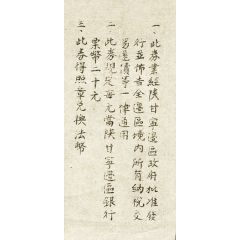 一、此券業經陝甘寧邊區政府批准發
行並佈告全邊區境内所有納稅交
易還債等一律通用
二、此券規定每元當陝甘寧邊區銀行
票幣二十元
三、此券得照章兌換法幣